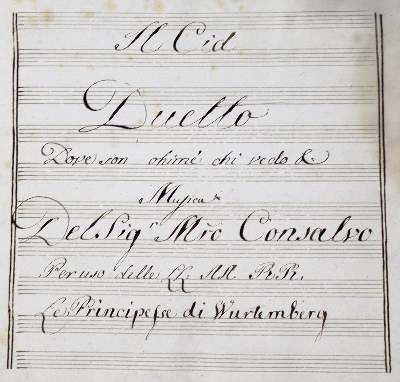 Il Cid
Duetto
Dove son ohimé chi vedo &
Musica
Del Sig.r Mro Consalvo
Per uso delle LL. AA. R.R.
Le Principesse di Wurtemberg